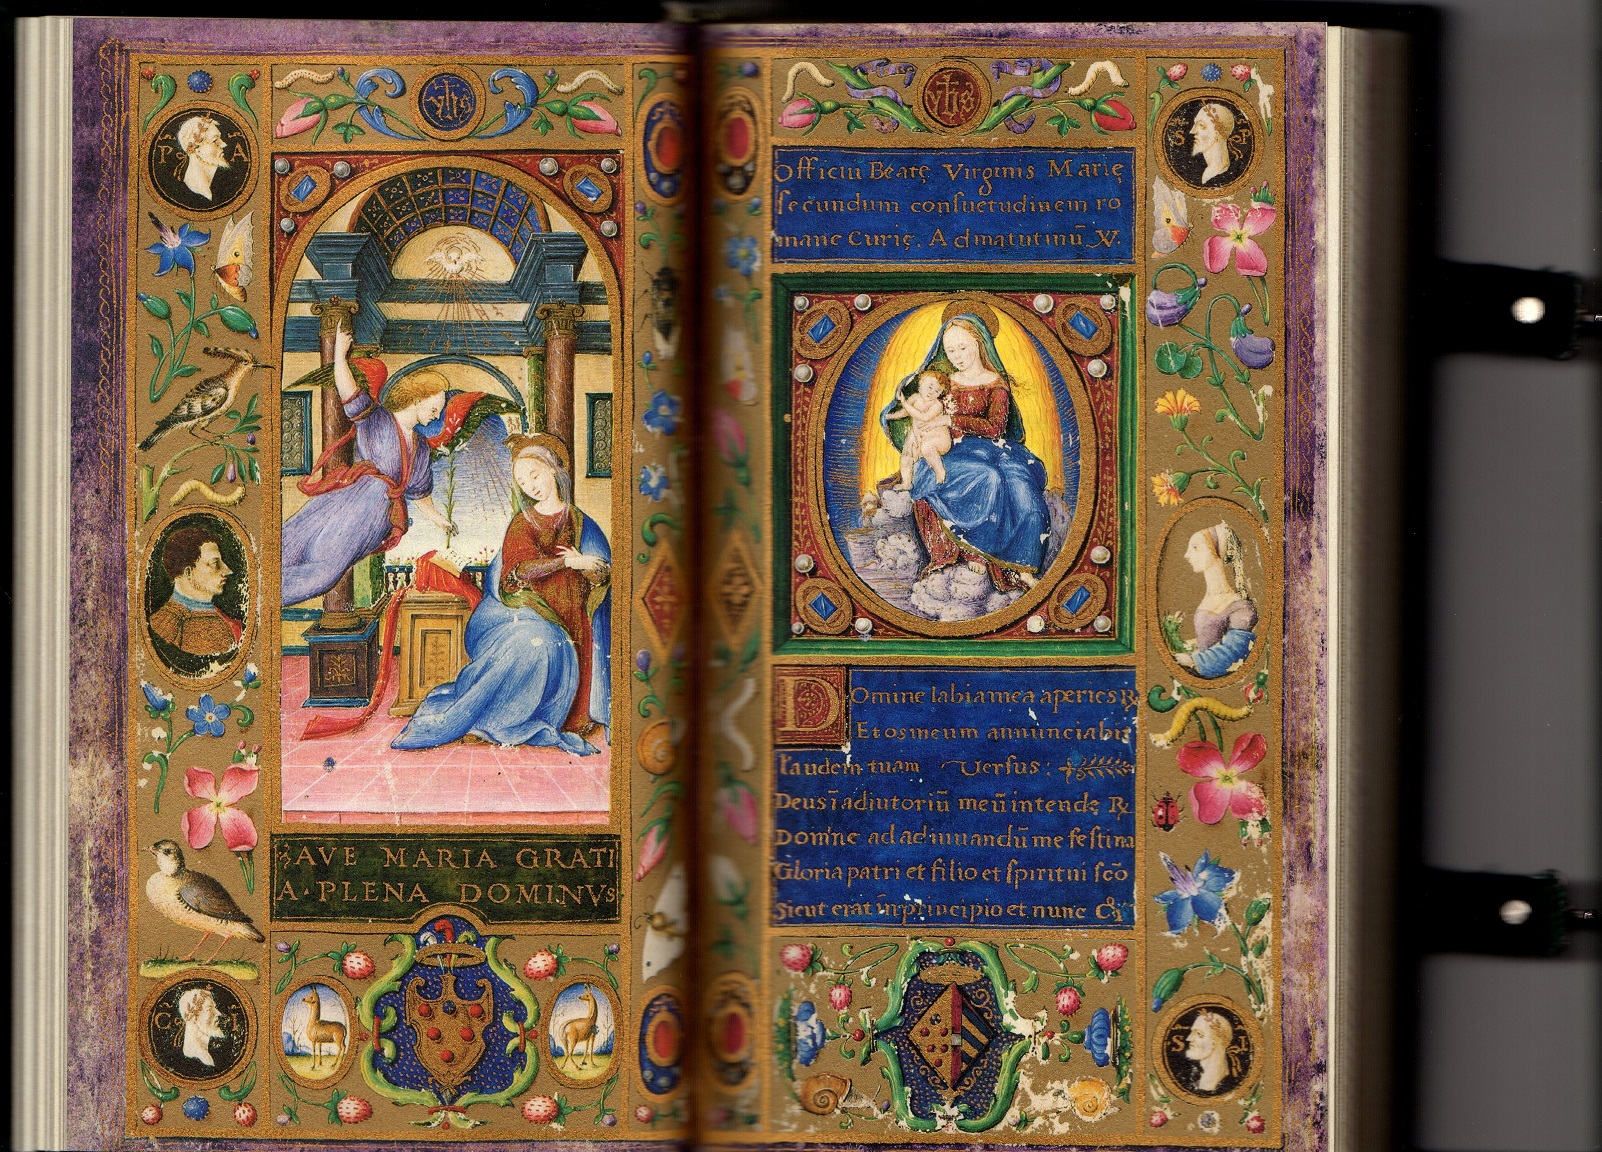 yhs
P A
AVE MARIA GRATI
A·PLENA DOMINVS
G I
yhs
S P
Officiū Beatę Virginis Marię
secundum consuetudinem ro
mane Curię. Ad matutinū. V.
Domine labia mea aperies ℞
Et os meum annunciabit
laudem tuam Versus:
Deus ī adiutoriū meū intende ℞
Domine ad adiuuandū me festina
Gloria patri et filio et spiritui scō
Sicut erat in principio et nunc &
S I